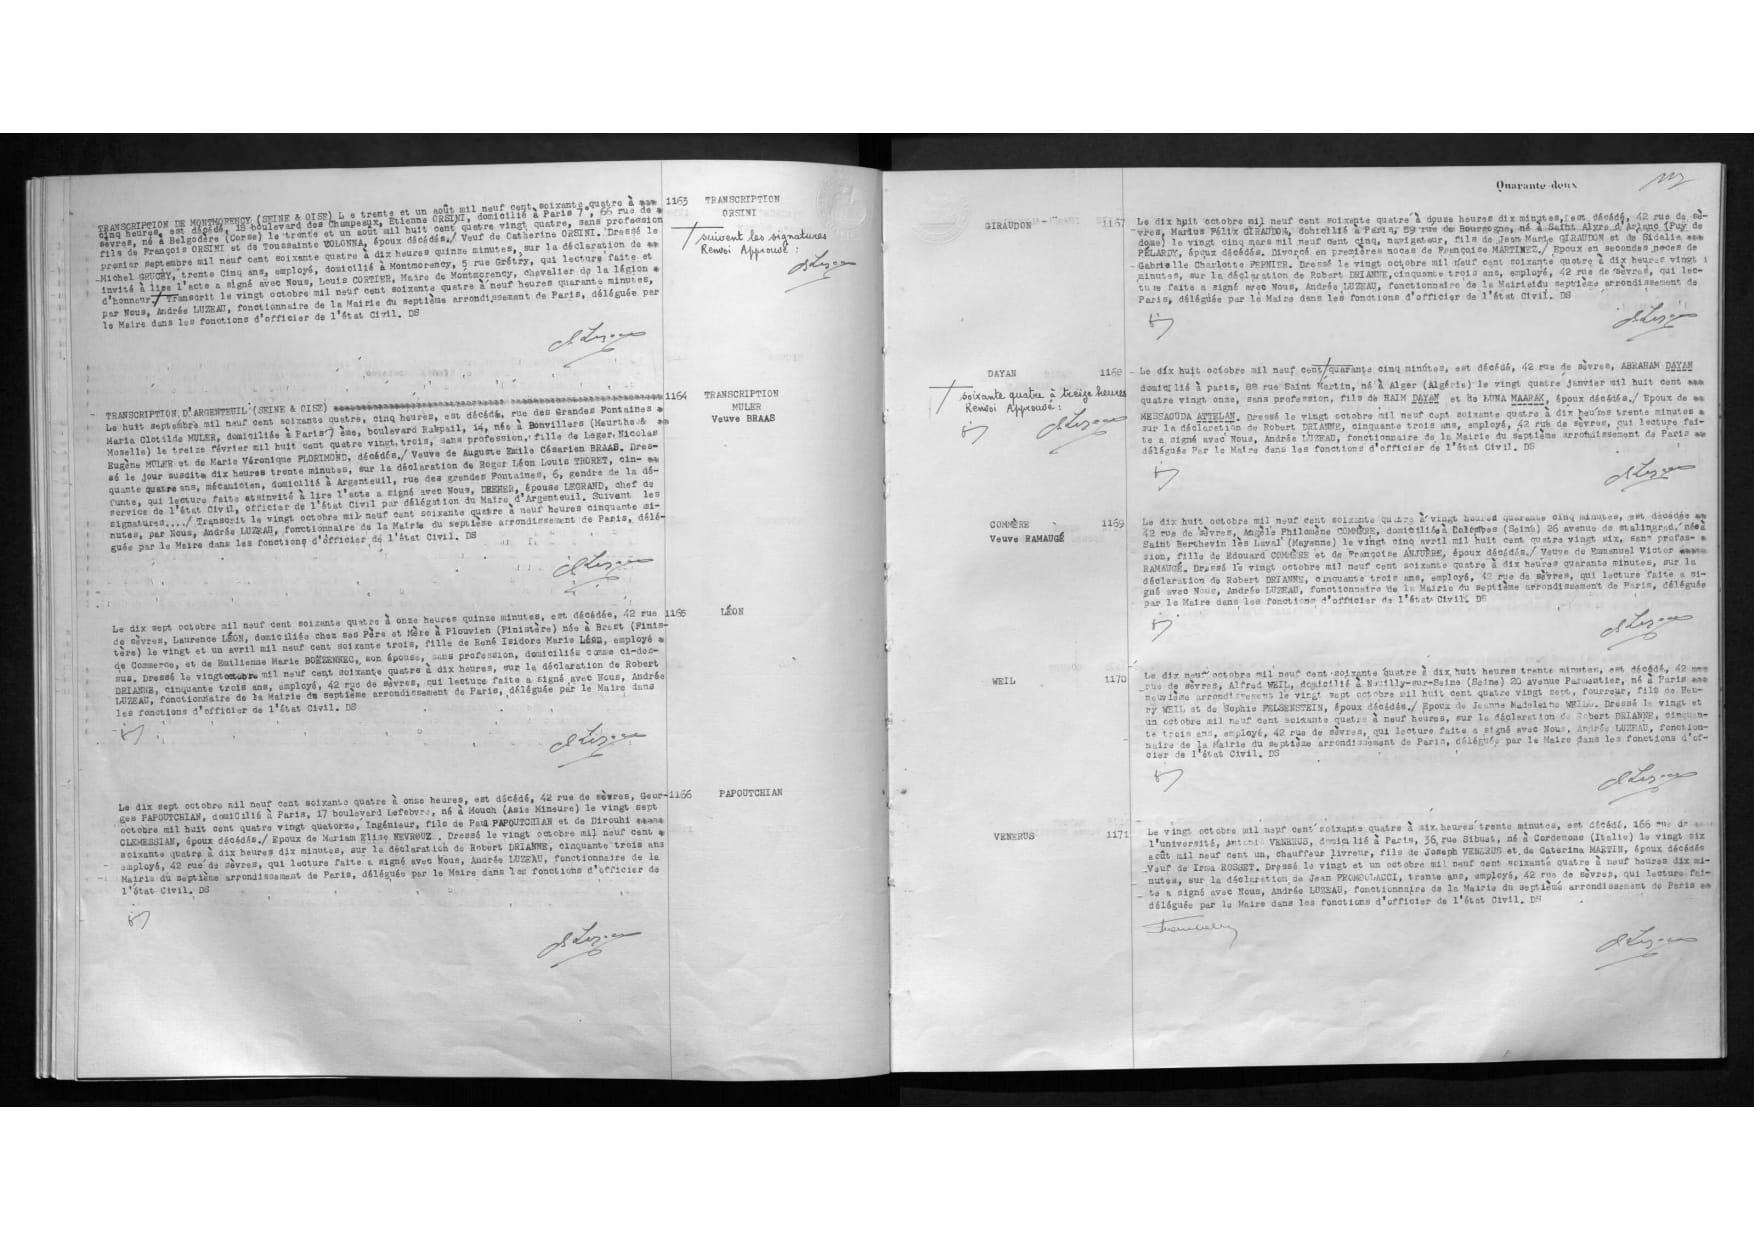 1163
TRANSCRIPTION
ORSINI
suivent les signatures
Renvoi Approuvé :
TRANSCRIPTION DE MONTMORENCY (SEINE & OISE) Le trente et un août mil neuf cent soixante quatre à
cinq heures, est décédé, 18 boulevard des Champeaux, Etienne ORSINI, domicilié à Paris 7°, 66 rue de
sèvres, né à Belgodère (Corse) le trente et un août mil huit cent quatre vingt quatre, sans profession
fils de François ORSINI et de Toussainte VOLONNA, époux décédés./ Veuf de Catherine ORSINI. Dressé le
premier septembre mil neuf cent soixante quatre à dix heures quinze minutes, sur la déclaration de
Michel GRUCHY, trente Cinq ans, employé, domicilié à Montmorency, 5 rue Grétry, qui lecture faite et
invité à lire l'acte a signé avec Nous, Louis CORTIER, Maire de Montmorency, chevalier de la légion
d'honneur. Transcrit le vingt octobre mil neuf cent soixante quatre à neuf heures quarante minutes,
par Nous, Andrée LUZEAU, fonctionnaire de la Mairie du septième arrondissement de Paris, déléguée par
le Maire dans les fonctions d'officier de l'état Civil. DS
1164
TRANSCRIPTION
MULER
Veuve BRAAS
TRANSCRIPTION D'ARGENTEUIL (SEINE & OISE)
Le huit septembre mil neuf cent soixante quatre, cinq heures, est décédé, rue des Grandes Fontaines
Maria Clotilde MULER, domiciliée à Paris 7 ème, boulevard Raspail, 14, née à Bonvillers (Meurthe &
Moselle) le treize février mil huit cent quatre vingt trois, sans profession, fille de Leger Nicolas
Eugène MULER et de Marie Véronique FLORIMOND, décédés./ Veuve de Auguste Emile Césarien BRAAS. Dres-
sé le jour suscité dix heures trente minutes, sur la déclaration de Roger Léon Louis THORET, cin-
quante quatre ans, mécanicien, domicilié à Argenteuil, rue des grandes Fontaines, 6, gendre de la dé-
funte, qui lecture faite et invité à lire l'acte a signé avec Nous, DREHER, épouse LEGRAND, chef de
service de l'état Civil, officier de l'état Civil par délégation du Maire d'Argenteuil. Suivent les
signatures..../ Transcrit le vingt octobre mil neuf cent soixante quatre à neuf heures cinquante mi-
nutes, par Nous, Andrée LUZEAU, fonctionnaire de la Mairie du septième arrondissement de Paris, délé-
guée par le Maire dans les fonctions d'officier de l'état Civil. DS
1165
LÉON
Le dix sept octobre mil neuf cent soixante quatre à onze heures quinze minutes, est décédée, 42 rue
de sèvres, Laurence LÉON, domiciliée chez ses Père et Mère à Plouvien (Finistère) née à Brest (Finis-
tère) le vingt et un avril mil neuf cent soixante trois, fille de René Isidore Marie Léon, employé
de Commerce, et de Emilienne Marie BOËZENNEC, son épouse, sans profession, domiciliés comme ci-des-
sus. Dressé le vingt octobre mil neuf cent soixante quatre à dix heures, sur la déclaration de Robert
DRIANNE, cinquante trois ans, employé, 42 rue de sèvres, qui lecture faite a signé avec Nous, Andrée
LUZEAU, fonctionnaire de la Mairie du septième arrondissement de Paris, déléguée par le Maire dans
les fonctions d'officier de l'état Civil. DS
1166
PAPOUTCHIAN
Le dix sept octobre mil neuf cent soixante quatre à onze heures, est décédé, 42 rue de sèvres, Geor-
ges PAPOUTCHIAN, domicilié à Paris, 17 boulevard Lefebvre, né à Mouch (Asie Mineure) le vingt sept
octobre mil huit cent quatre vingt quatorze, Ingénieur, fils de Paul PAPOUTCHIAN et de Dirouhi
CLEMESSIAN, époux décédés./ Epoux de Mariam Elise NEVROUZ. Dressé le vingt octobre mil neuf cent
soixante quatre à dix heures dix minutes, sur la déclaration de Robert DRIANNE, cinquante trois ans
employé, 42 rue de sèvres, qui lecture faite a signé avec Nous, Andrée LUZEAU, fonctionnaire de la
Mairie du septième arrondissement de Paris, déléguée par le Maire dans les fonctions d'officier de
l'état Civil. DS
Quarante-deux
GIRAUDON
1167
Le dix huit octobre mil neuf cent soixante quatre à douze heures dix minutes, est décédé, 42 rue de sè-
vres, Marius Félix GIRAUDON, domicilié à Paris, 59 rue de Bourgogne, né à Saint Alyre d'Arlanc (Puy de
dome) le vingt cinq mars mil neuf cent cinq, navigateur, fils de Jean Marie GIRAUDON et de Sidalie
PÉLARDY, époux décédés. Divorcé en premières noces de Françoise MARTINEZ./ Epoux en secondes noces de
Gabrielle Charlotte FERNIER. Dressé le vingt octobre mil neuf cent soixante quatre à dix heures vingt
minutes, sur la déclaration de Robert DRIANNE, cinquante trois ans, employé, 42 rue de sèvres, qui lec-
ture faite a signé avec Nous, Andrée LUZEAU, fonctionnaire de la Mairie du septième arrondissement de
Paris, déléguée par le Maire dans les fonctions d'officier de l'état Civil. DS
DAYAN
1168
soixante quatre à treize heures
Renvoi Approuvé :
Le dix huit octobre mil neuf cent quarante cinq minutes, est décédé, 42 rue de sèvres, ABRAHAM DAYAN
domicilié à paris, 88 rue Saint Martin, né à Alger (Algérie) le vingt quatre janvier mil huit cent
quatre vingt onze, sans profession, fils de HAIM DAYAN et de LUNA MAARAK, époux décédés./ Epoux de
MESSAOUDA ATTELAN. Dressé le vingt octobre mil neuf cent soixante quatre à dix heures trente minutes
sur la déclaration de Robert DRIANNE, cinquante trois ans, employé, 42 rue de sèvres, qui lecture fai-
te a signé avec Nous, Andrée LUZEAU, fonctionnaire de la Mairie du septième arrondissement de Paris
déléguée Par le Maire dans les fonctions d'officier de l'état Civil. DS
COMMÈRE
Veuve RAMAUGÉ
1169
Le dix huit octobre mil neuf cent soixante quatre à vingt heures quarante cinq minutes, est décédée
42 rue de sèvres, Angèle Philomène COMMÈRE, domiciliée à Colombes (Seine) 26 avenue de stalingrad, née à
Saint Berthevin lès Laval (Mayenne) le vingt cinq avril mil huit cent quatre vingt six, sans profes-
sion, fille de Edouard COMMÈRE et de Françoise ANJUÈRE, époux décédés./ Veuve de Emmanuel Victor
RAMAUGÉ. Dressé le vingt octobre mil neuf cent soixante quatre à dix heures quarante minutes, sur la
déclaration de Robert DRIANNE, cinquante trois ans, employé, 42 rue de sèvres, qui lecture faite a si-
gné avec Nous, Andrée LUZEAU, fonctionnaire de la Mairie du septième arrondissement de Paris, déléguée
par le Maire dans les fonctions d'officier de l'état Civil. DS
WEIL
1170
Le dix neuf octobre mil neuf cent soixante quatre à dix huit heures trente minutes, est décédé, 42
rue de sèvres, Alfred WEIL, domicilié à Neuilly-sur-Seine (Seine) 20 avenue Parmentier, né à Paris
neuvième arrondissement le vingt sept octobre mil huit cent quatre vingt sept, fourreur, fils de Hen-
ry WEIL et de Sophie FELSENSTEIN, époux décédés./ Epoux de Jeanne Madeleine WEILL. Dressé le vingt et
un octobre mil neuf cent soixante quatre à neuf heures, sur la déclaration de Robert DRIANNE, cinquan-
te trois ans, employé, 42 rue de sèvres, qui lecture faite a signé avec Nous, Andrée LUZEAU, fonction-
naire de la Mairie du septième arrondissement de Paris, déléguée par le Maire dans les fonctions d'of-
cier de l'état Civil. DS
VENERUS
1171
Le vingt octobre mil neuf cent soixante quatre à six heures trente minutes, est décédé, 166 rue de
l'université, Antonio VENERUS, domicilié à Paris, 36, rue Sibuet, né à Cordenons (Italie) le vingt six
août mil neuf cent un, chauffeur livreur, fils de Joseph VENERUS et de Caterina MARTIN, époux décédés
Veuf de Irma ROSSET. Dressé le vingt et un octobre mil neuf cent soixante quatre à neuf heures dix mi-
nutes, sur la déclaration de Jean FROMBOLACCI, trente ans, employé, 42 rue de sèvres, qui lecture fai-
te a signé avec Nous, Andrée LUZEAU, fonctionnaire de la Mairie du septième arrondissement de Paris
déléguée par le Maire dans les fonctions d'officier de l'état Civil. DS